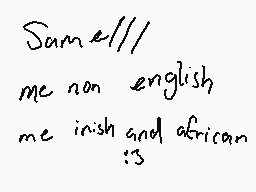 Samelll
me non english
me irish and african
:3